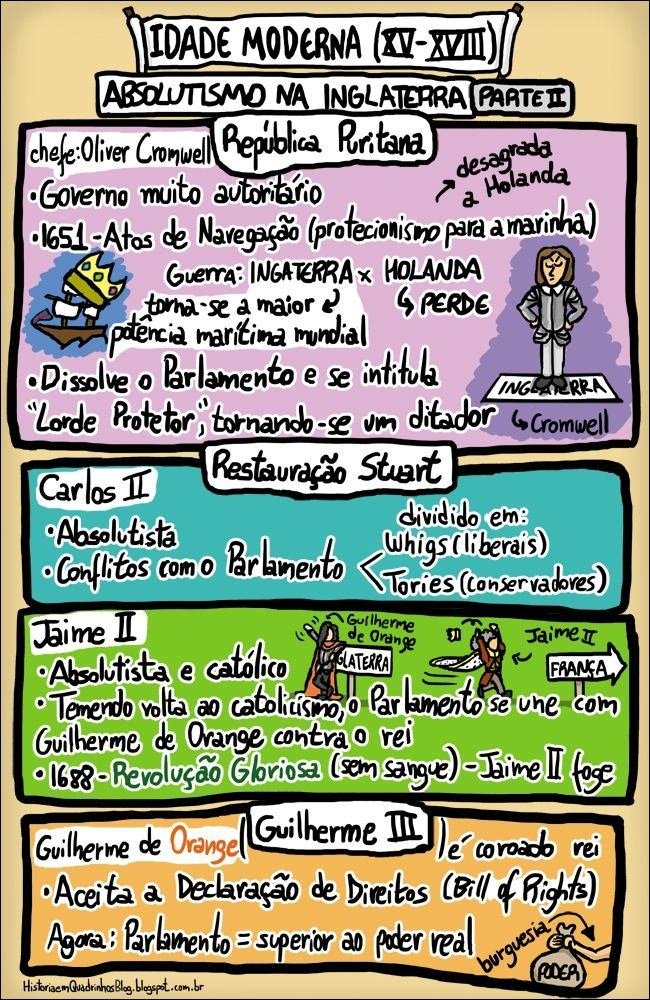 IDADE MODERNA (XV-XVIII)
ABSOLUTISMO NA INGLATERRA PARTE II
República Puritana
chefe: Oliver Cromwell
•Governo muito autoritário
desagrada
a Holanda
•1651-Atos de Navegação (protecionismo para a marinha)
Guerra: INGATERRA x HOLANDA
PERDE
torna-se a maior
potência marítima mundial
•Dissolve o Parlamento e se intitula
"Lorde Protetor", tornando-se um ditador
INGLATERRA
Cromwell
Restauração Stuart
Carlos II
•Absolutista
•Conflitos com o Parlamento
dividido em:
Whigs (liberais)
Tories (conservadores)
Jaime II
Guilherme
de Orange
GLATERRA
Jaime II
FRANÇA
•Absolutista e católico
•Temendo volta ao catolicismo, o Parlamento se une com
Guilherme de Orange contra o rei
•1688-Revolução Gloriosa (sem sangue)-Jaime II foge
Guilherme de Orange (Guilherme III) é coroado rei
•Aceita a Declaração de Direitos (Bill of Rights)
Agora: Parlamento = superior ao poder real
burguesia
PODER
HistoriaemQuadrinhosBlog.blogspot.com.br